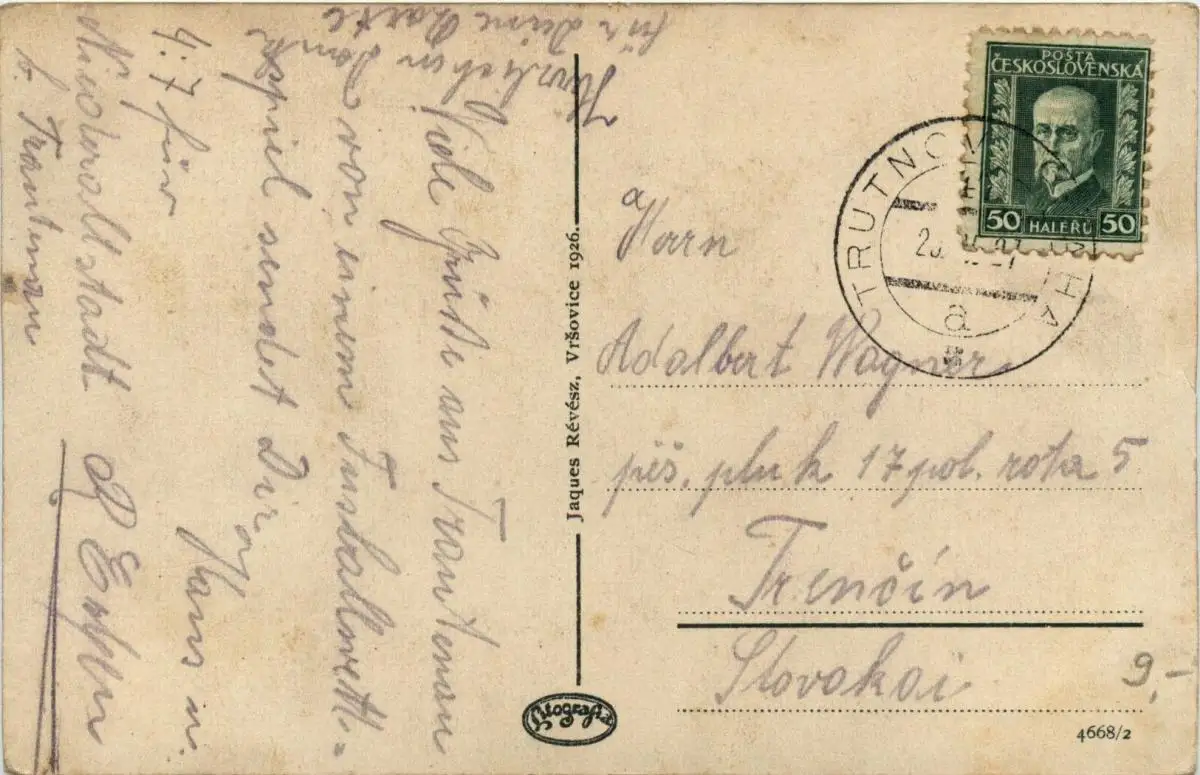 Herzlichen Dank
für Deine Karte
Viele Grüße aus Trautenau
von einem Fussballwett-
spiel sendet Dir
4:7 für Hans u.
Niederaltstadt
b. Trautenau
Jaques Révész, Vršovice 1926.
Litografia
POŠTA
ČESKOSLOVENSKÁ
50 HALÉŘŮ 50
TRUTNOV
a
Herrn
Adalbert Wagner
pěš. pluk 17 pol. rota 5
Trenčín
Slovakai
9,-
4668/2